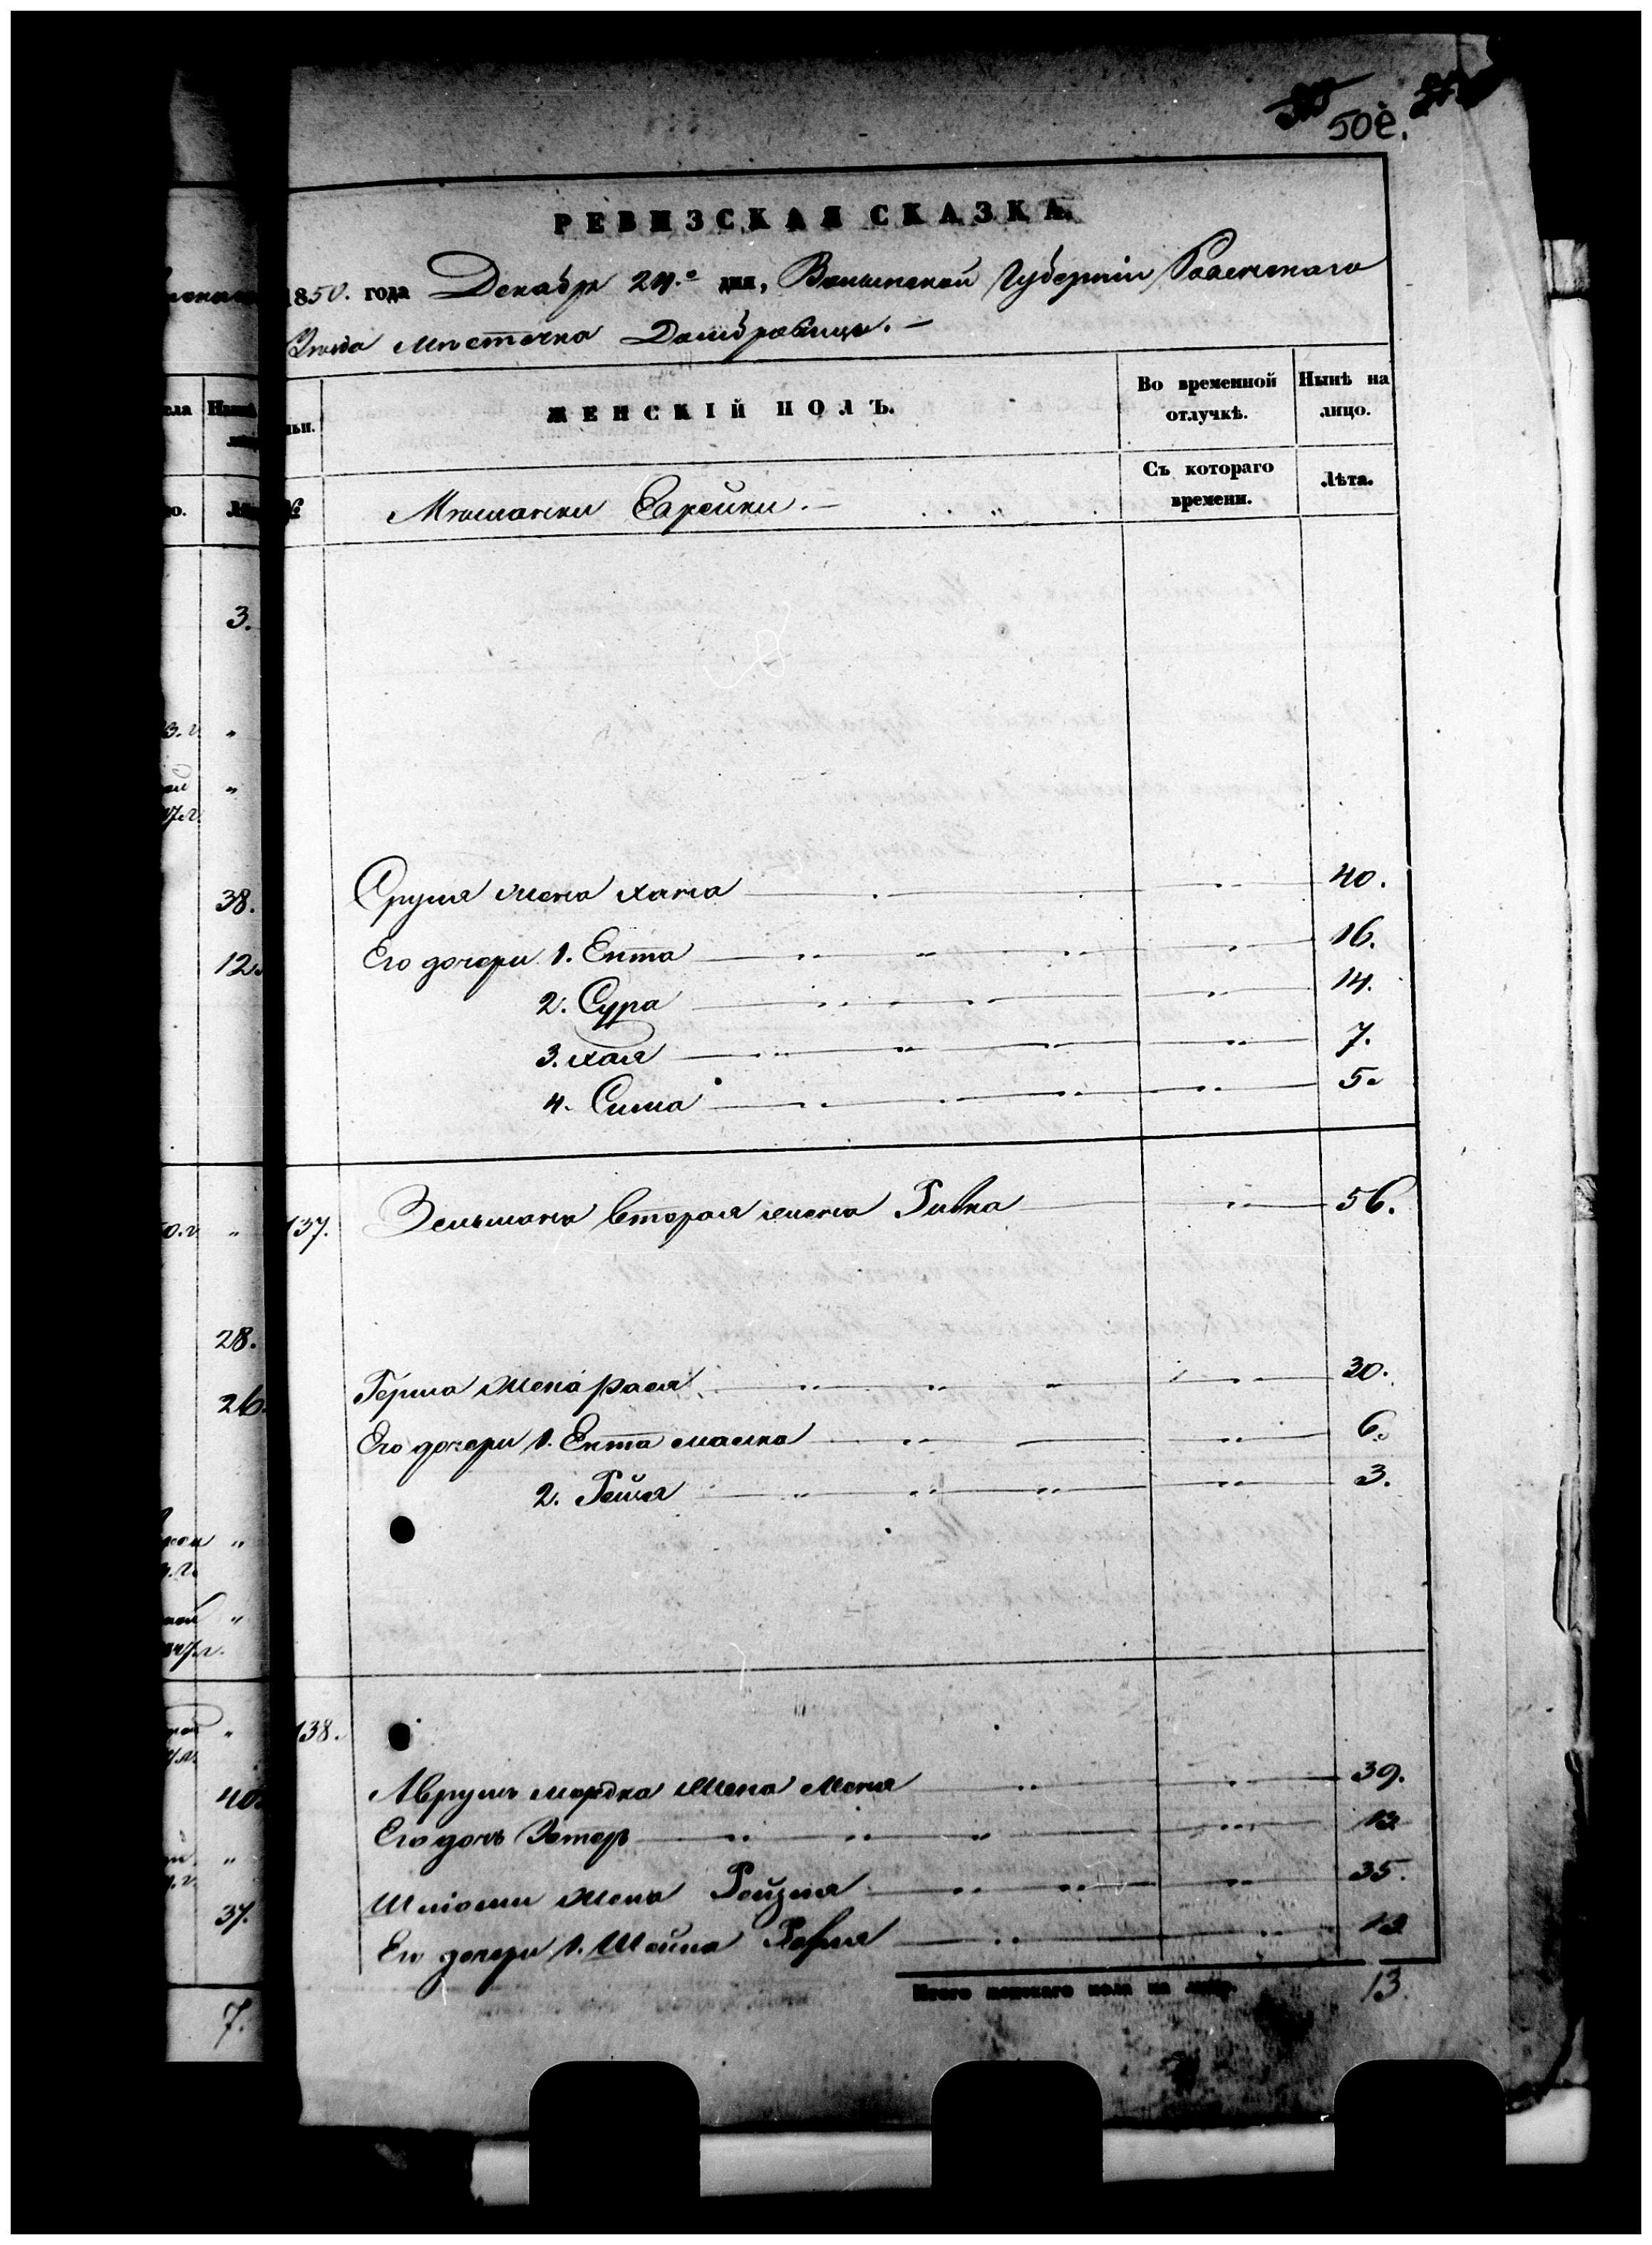 50е.
РЕВИЗСКАЯ СКАЗКА.
1850. года Декабря 24.го дня, Волынской Губерніи Ровенскаго
Уѣзда мѣстечка Домбровицы.
ЖЕНСКІЙ ПОЛЪ.
Во временной отлучкѣ.
Нынѣ на лицо.
№
Мѣщанки Еврейки.
Съ котораго времени.
Лѣта.
3.
38.
12.
Сруля жена хана 40.
Его дочери 1. Ента 16.
2. Сура 14.
3. хая 7.
4. Сима 5.
137. Зельмана вторая жена Ривка 56.
28.
26.
Герша жена рася 30.
Его дочери 1. Ента малка 6.
2. Рейзя 3.
138.
40.
37.
Аврумъ мордка жена Меня 39.
Его дочь Эстеръ 12
Шліомы жена Рейзля 35.
Его дочери 1. Шейна 12
Итого женскаго пола на лицо. 13.
7.